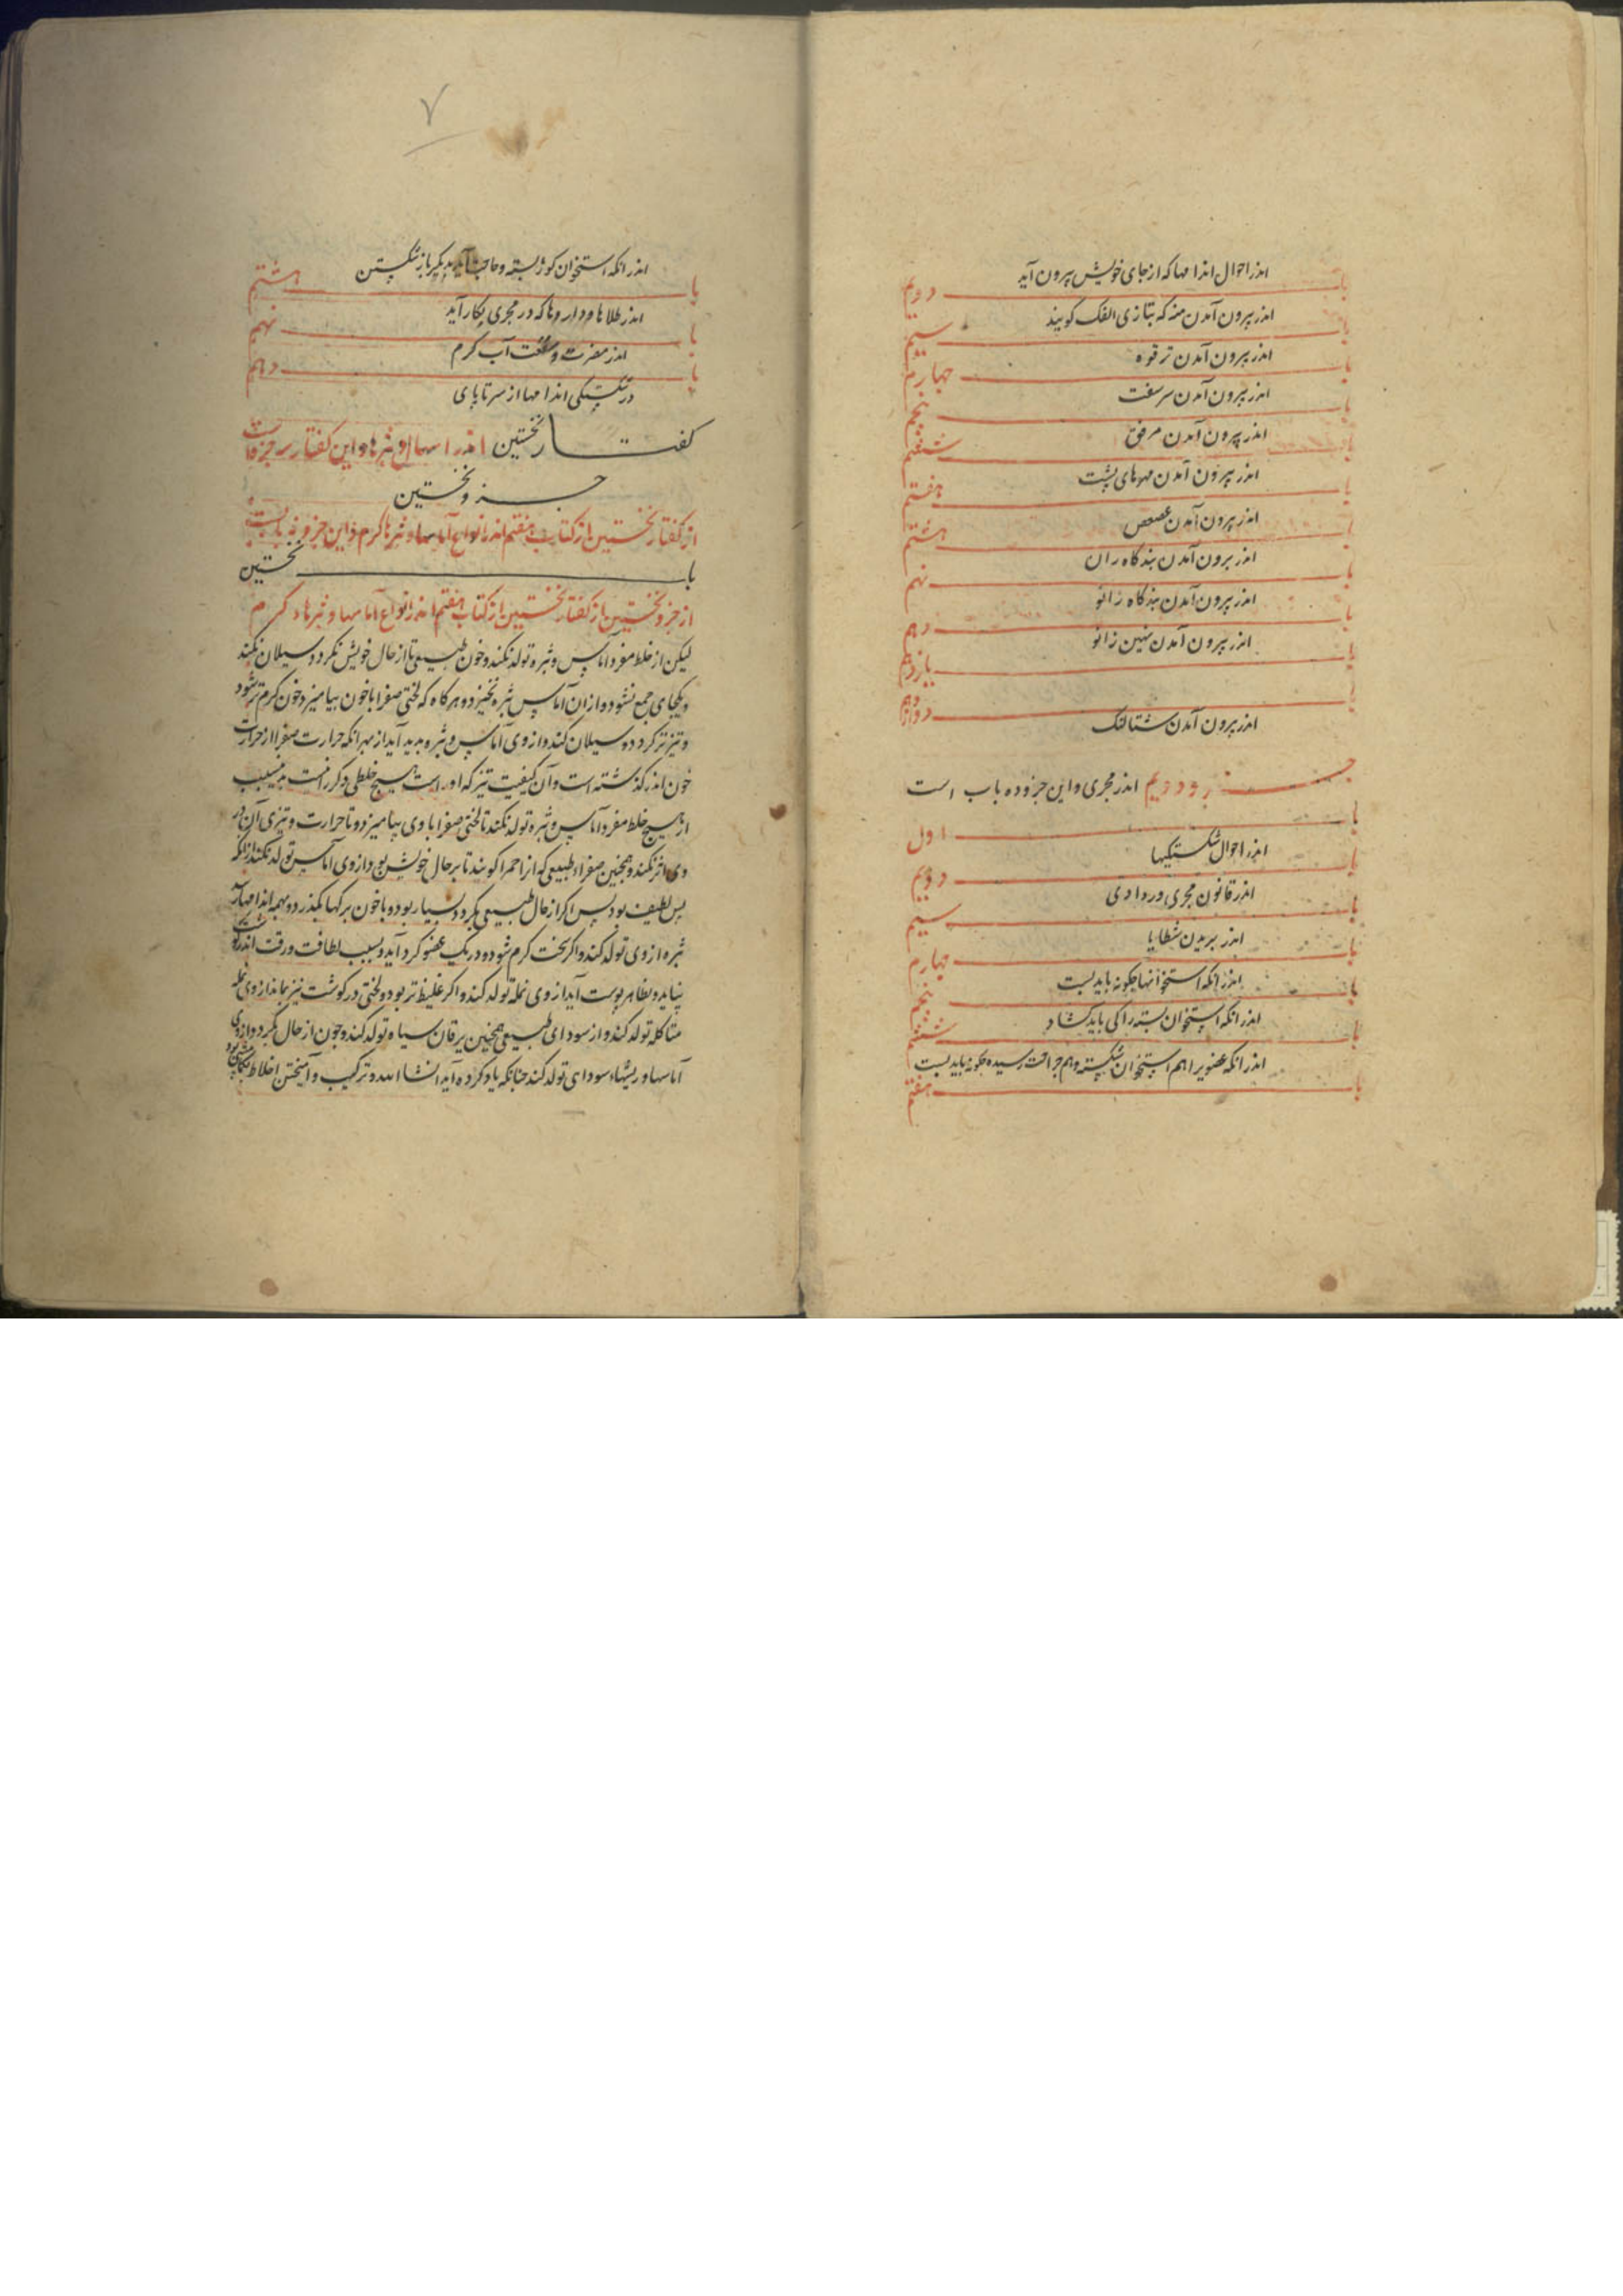 باب دویم
اندر احوال اندامها که از جای خویش بیرون آید
باب سیم
اندر بیرون آمدن منه که بتازی الفک کویند
باب چهارم
اندر بیرون آمدن ترقوه
باب پنجم
اندر بیرون آمدن سر سفت
باب ششم
اندر بیرون آمدن مرفق
باب هفتم
اندر بیرون آمدن مهرهای پشت
باب هشتم
اندر بیرون آمدن عصعص
باب نهم
اندر بیرون آمدن بندکاه ران
باب دهم
اندر بیرون آمدن بندکاه زانو
باب یازدهم
اندر بیرون آمدن نهین زانو
باب دوازدهم
اندر بیرون آمدن شتالنک
جزو دویم اندر مجری و این جزو ده باب است
باب اول
اندر احوال شکستکیها
باب دویم
اندر قانون مجری و رداوی
باب سیم
اندر بریدن شظایا
باب چهارم
اندر انکه استخوانها چکونه باید بست
باب پنجم
اندر انکه استخوان بسته را کی باید کشاد
باب ششم
اندر انکه عضویرا هم استخوان شکسته و هم جراحت رسیده چکونه باید بست
باب هفتم
اندر انکه استخوان کوژ بسته و حاجت آید بدیکر باز شکستن
باب هشتم
اندر طلاها و داروها که در مجری بکار آید
باب نهم
اندر مضرت و منفعت آب کرم
باب دهم
در شکستکی اندامها از سر تا پای
کفتار نخستین اندر اماسها و بثرها و این کفتار سه جزو است
جزو نخستین
از کفتار نخستین از کتاب هفتم اندر انواع آماسها و بثرها کرم و این جزو نه بابست
باب نخستین
از جزو نخستین از کفتار نخستین از کتاب هفتم اندر انواع آماسها و بثرهاء کرم
لیکن از خلط مفرد آماس و بثره تولد نکند و خون طبیعی تا از حال خویش نکردد سیلان نکند
و یکجای جمع نشود و از ان آماس و بثره نخیزد و هرکاه که لختی صفرا با خون بیامیزد خون کرم تر شود
و تیزتر کردد و سیلان کند و از وی آماس و بثره پدید آید از بهر انکه حرارت صفرا از حرارت
خون اندر کذشته است و آن کیفیت تیز که او راست هیچ خلطی دکر را نیست بدین سبب
از هیچ خلط مفرد آماس و بثره تولد نکند تا لختی صفرا با وی بیامیزد و تا حرارت و تیزی آن در
وی اثر نکند و همچنین صفراء طبیعی که انرا احمرا کویند تا بر حال خویش بود از وی آماس تولد نکند از انکه
بس لطیف بود پس اکر از حال طبیعی بکردد و بسیار بود و با خون برکها بکذرد و بهمه اندامها بر آید
بثره از وی تولد کند و اکر سخت کرم شود و در یک عضو کرد آید و بسبب لطافت و رقت اندر کوشت
نپاید و بظاهر پوست آید از وی نمله تولد کند و اکر غلیظ تر بود و لختی در کوشت نیز بماند از وی نمله
متاکله تولد کند و از سودای طبیعی همچنین یرقان سیاه تولد کند و چون از حال بکردد از وی
آماسها و ریشهاء سودای تولد کند چنانکه یاد کرده آید انشا الله و ترکیب و آمیختن اخلاط